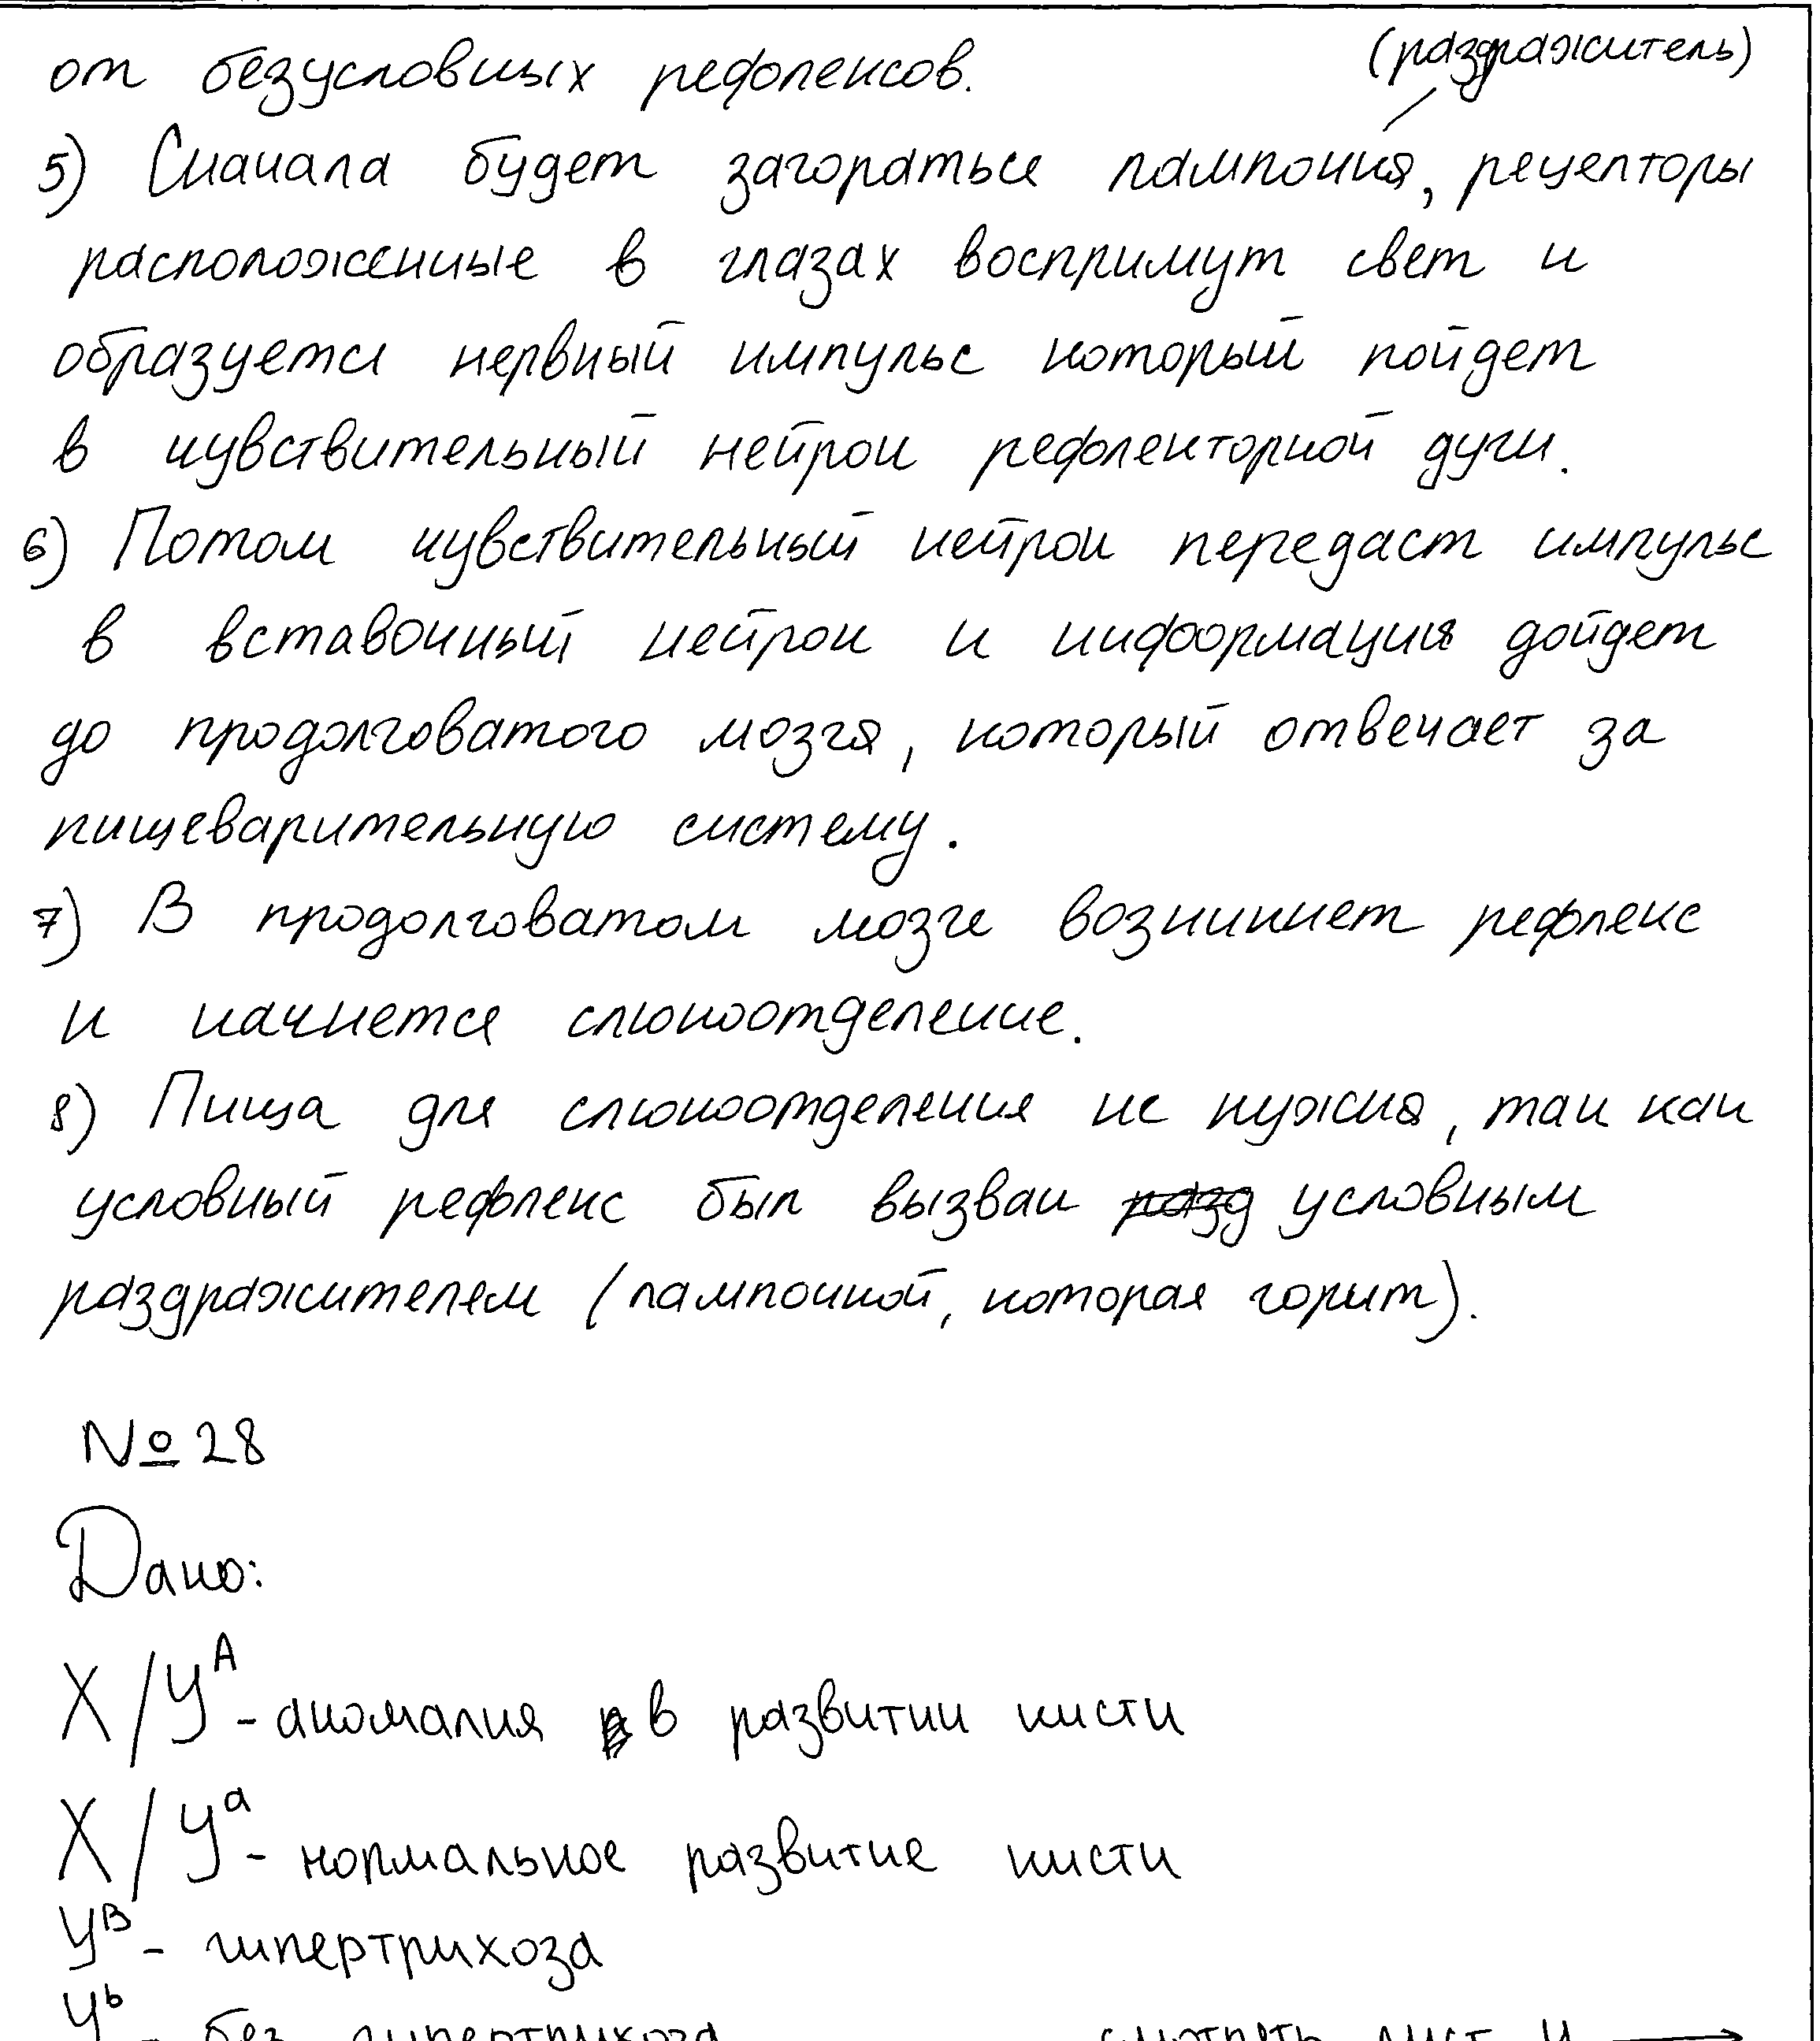 от безусловных рефлексов.
(раздражитель)
5) Сначала будет загораться лампочка, рецепторы
расположенные в глазах воспримут свет и
образуется нервный импульс который пойдет
в чувствительный нейрон рефлекторной дуги.
6) Потом чувствительный нейрон передаст импульс
в вставочный нейрон и информация дойдет
до продолговатого мозга, который отвечает за
пищеварительную систему.
7) В продолговатом мозге возникнет рефлекс
и начнется слюноотделение.
8) Пища для слюноотделения не нужна, так как
условный рефлекс был вызван разд условным
раздражителем (лампочкой, которая горит).
№ 28
Дано:
X/Y^A - аномалия в развитии кисти
X/Y^a - нормальное развитие кисти
Y^B - гипертрихоза
Y^b - без гипертрихоза
смотреть лист 4 →